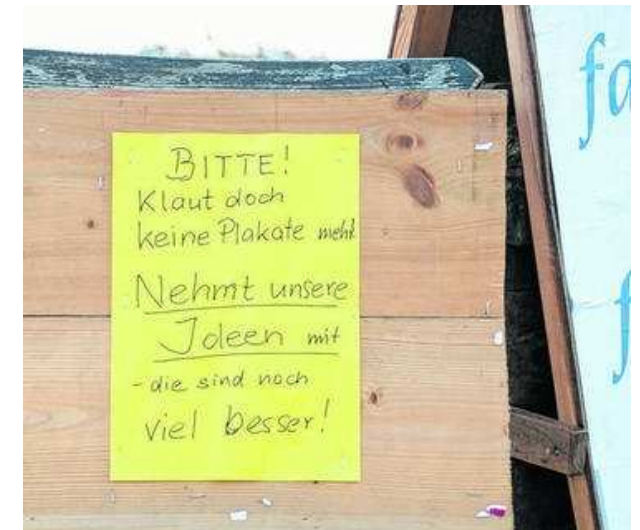 BITTE!
Klaut doch
keine Plakate mehr
Nehmt unsere
Ideen mit
- die sind noch
viel besser!
fa
f